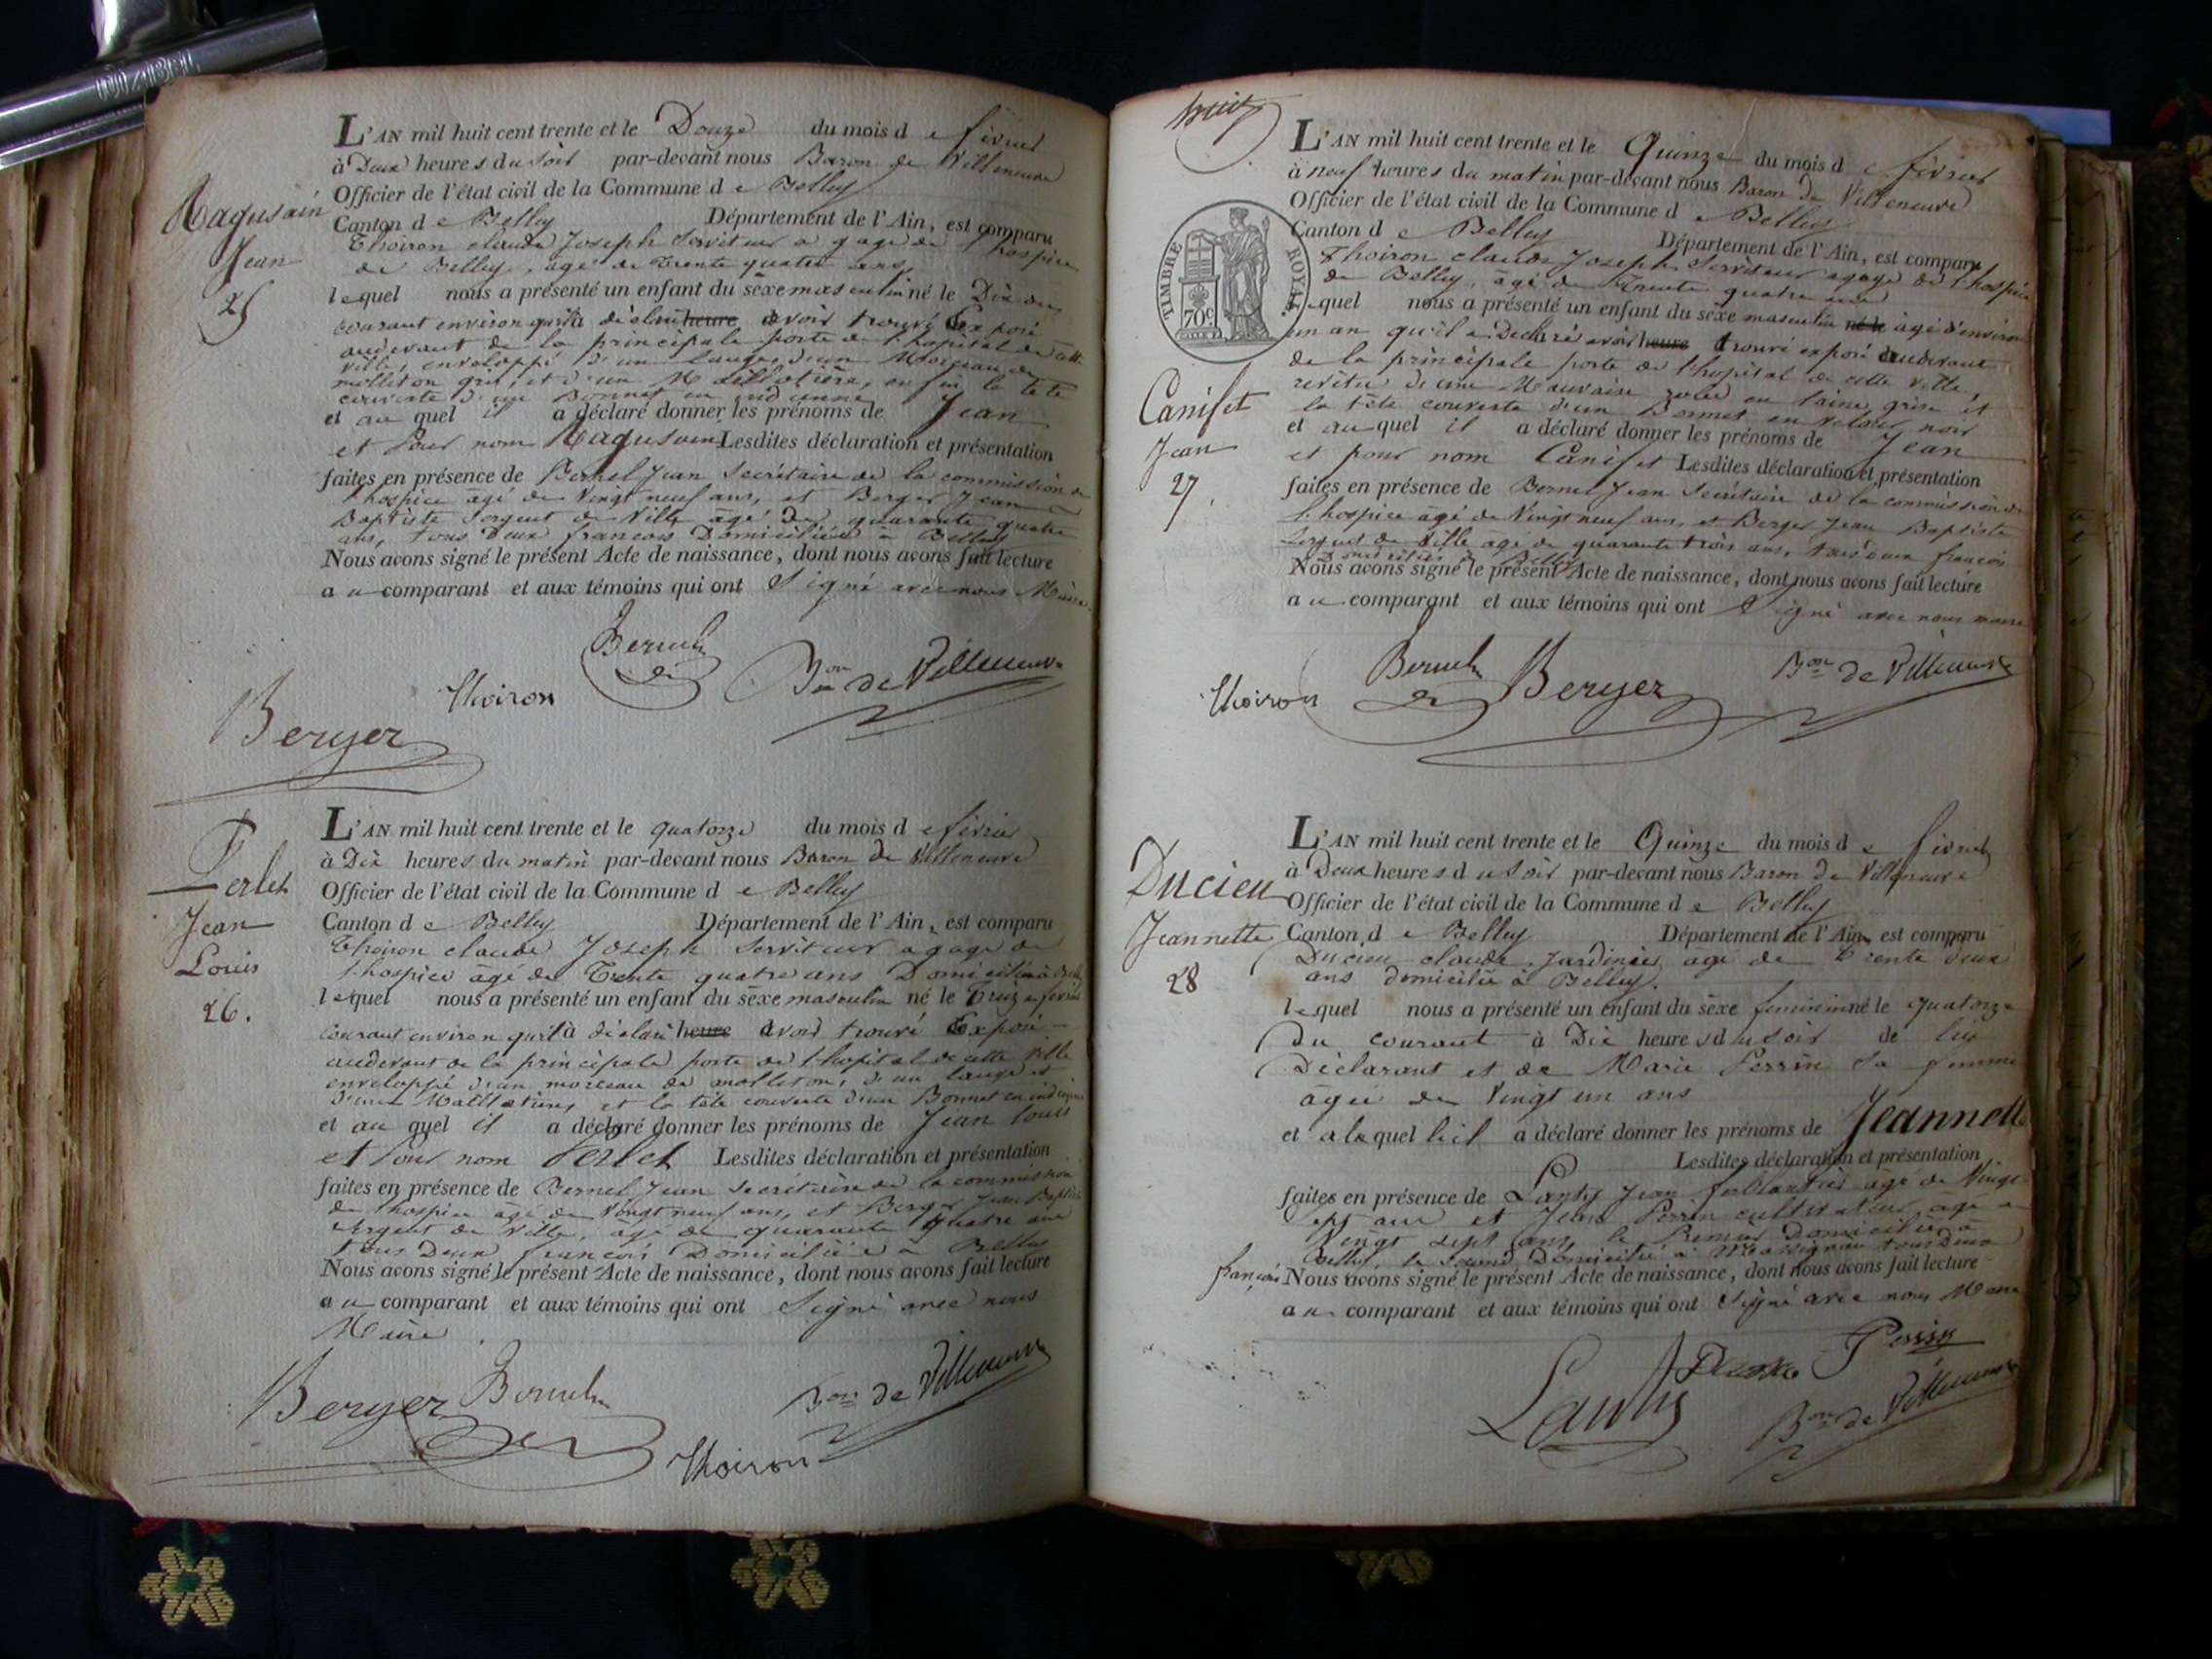 L'AN mil huit cent trente et le Douze du mois d e février
à Deux heures du soir par-devant nous Baron de Villeneuve
Officier de l'état civil de la Commune d e Belley
Canton d e Belley Département de l'Ain, est comparu
Thoiron claude Joseph Serviteur a gage de l'hospice
de Belley, agé de trente quatre ans,
lequel nous a présenté un enfant du sexe masculin né le Dix du
courant environ qu'il à déclaré heure avoir trouvé Exposé
audevant de la principale porte de l'hopital de cette
ville, enveloppé d'un lange, d'un Morceau de
molleton gris, et d'un Maillotière, enfin la tête
couverte d'un Bonnet en indienne
et au quel il a déclaré donner les prénoms de Jean
et Pour nom Ragusain Lesdites déclaration et présentation
faites en présence de Bernel Jean Secrétaire de la commission de
l'hospice âgé de Vingt neuf ans, et Berger Jean
Baptiste Sergent de Ville âgé de quarante quatre
ans, tous Deux francois Domiciliés à Belley
Nous avons signé le présent Acte de naissance, dont nous avons fait lecture
a u comparant et aux témoins qui ont Signé avec nous Maire
Ragusain
Jean
25
Thoiron
Bon de Villeneuve
Berger
L'AN mil huit cent trente et le quatorze du mois d e février
à Dix heures du matin par-devant nous Baron de Villeneuve
Officier de l'état civil de la Commune d e Belley
Canton d e Belley Département de l'Ain, est comparu
Thoiron claude Joseph Serviteur a gage de
l'hospice âgé de Trente quatre ans Domicilié à
lequel nous a présenté un enfant du sexe masculin né le Treize février
courant environ qu'il à déclaré heure avoir trouvé Exposé
audevant de la principale porte de l'hopital de cette Ville
enveloppé d'un morceau de molleton, d'un lange et
d'une Maillotière, et la tête couverte d'un Bonnet en indienne
et au quel il a déclaré donner les prénoms de Jean Louis
et Pour nom Perlet Lesdites déclaration et présentation
faites en présence de Bernel Jean Secrétaire de la commission
de l'hospice âgé de Vingt neuf ans, et Berger Jean Baptiste
Sergent de Ville, âgé de quarante quatre ans
tous Deux francois Domiciliés à Belley
Nous avons signé le présent Acte de naissance, dont nous avons fait lecture
a u comparant et aux témoins qui ont Signé avec nous
Maire
Perlet
Jean
Louis
26.
Berger
Bon de Villeneuve
Thoiron
huit
L'AN mil huit cent trente et le Quinze du mois d e février
à neuf heures du matin par-devant nous Baron de Villeneuve
Officier de l'état civil de la Commune d e Belley
Canton d e Belley Département de l'Ain, est comparu
Thoiron claude Joseph Serviteur agage de l'hospice
de Belley, âgé de Trente quatre ans
lequel nous a présenté un enfant du sexe masculin né le âgé d'environ
un an qu'il a Declaré avoir heure trouvé exposé audevant
de la principale porte de l'hopital de cette ville,
revêtu d'une Mauvaise robe en laine grise et
la tête couverte d'un Bonnet en velours noir
et au quel il a déclaré donner les prénoms de Jean
et pour nom Canifet Lesdites déclaration et présentation
faites en présence de Bernel Jean Secrétaire de la commission de
l'hospice âgé de Vingt neuf ans, et Berger Jean Baptiste
Sergent de Ville agé de quarante trois ans, tous deux francois
Domiciliés à Belley
Nous avons signé le présent Acte de naissance, dont nous avons fait lecture
a u comparant et aux témoins qui ont Signé avec nous maire
TIMBRE ROYAL
70c
Canifet
Jean
27.
Thoiron
Berger
Bon de Villeneuve
L'AN mil huit cent trente et le Quinze du mois d e février
à Deux heures d u Soir par-devant nous Baron de Villeneuve
Officier de l'état civil de la Commune d e Belley
Canton d e Belley Département de l'Ain, est comparu
Ducieu claude Jardinier âgé de Trente deux
ans domicilié à Belley.
lequel nous a présenté un enfant du sexe feminin né le quatorze
Du courant à Dix heures d u soir de lui
Déclarant et de Marie Perrin Sa femme
âgée de Vingt un ans
et a laquelle il a déclaré donner les prénoms de Jeannette
Lesdites déclaration et présentation
faites en présence de Lanty Jean ferblantier âgé de Vingt
Sept ans et Jean Perrin cultivateur, âgé de
Vingt sept ans, le Premier Domicilié à
Belley, le Second Domicilié à Massignieu tous Deux
francois Nous avons signé le présent Acte de naissance, dont nous avons fait lecture
a u comparant et aux témoins qui ont Signé avec nous Maire
Ducieu
Jeannette
28
Perrin
Lanty
Bon de Villeneuve